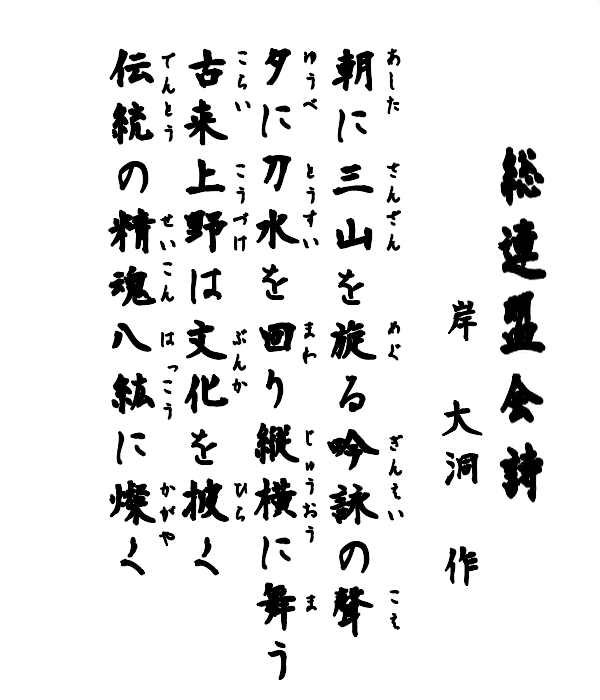 総連盟会詩
岸 大洞 作
朝に三山を旋る吟詠の聲
あした さんざん めぐ ぎんえい こえ
夕に刀水を回り縦横に舞う
ゆうべ とうすい まわ じゅうおう ま
古来上野は文化を披く
こらい こうづけ ぶんか ひら
伝統の精魂八紘に燦く
でんとう せいこん はっこう かがや